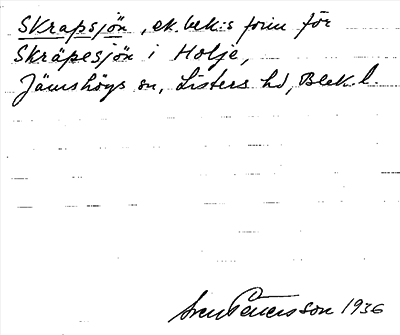 Skrapsjön, ek. bek:s form för
Skräpesjön i Holje,
Jämshögs sn, Listers hd, Blek. l.
Sven Benersson 1936